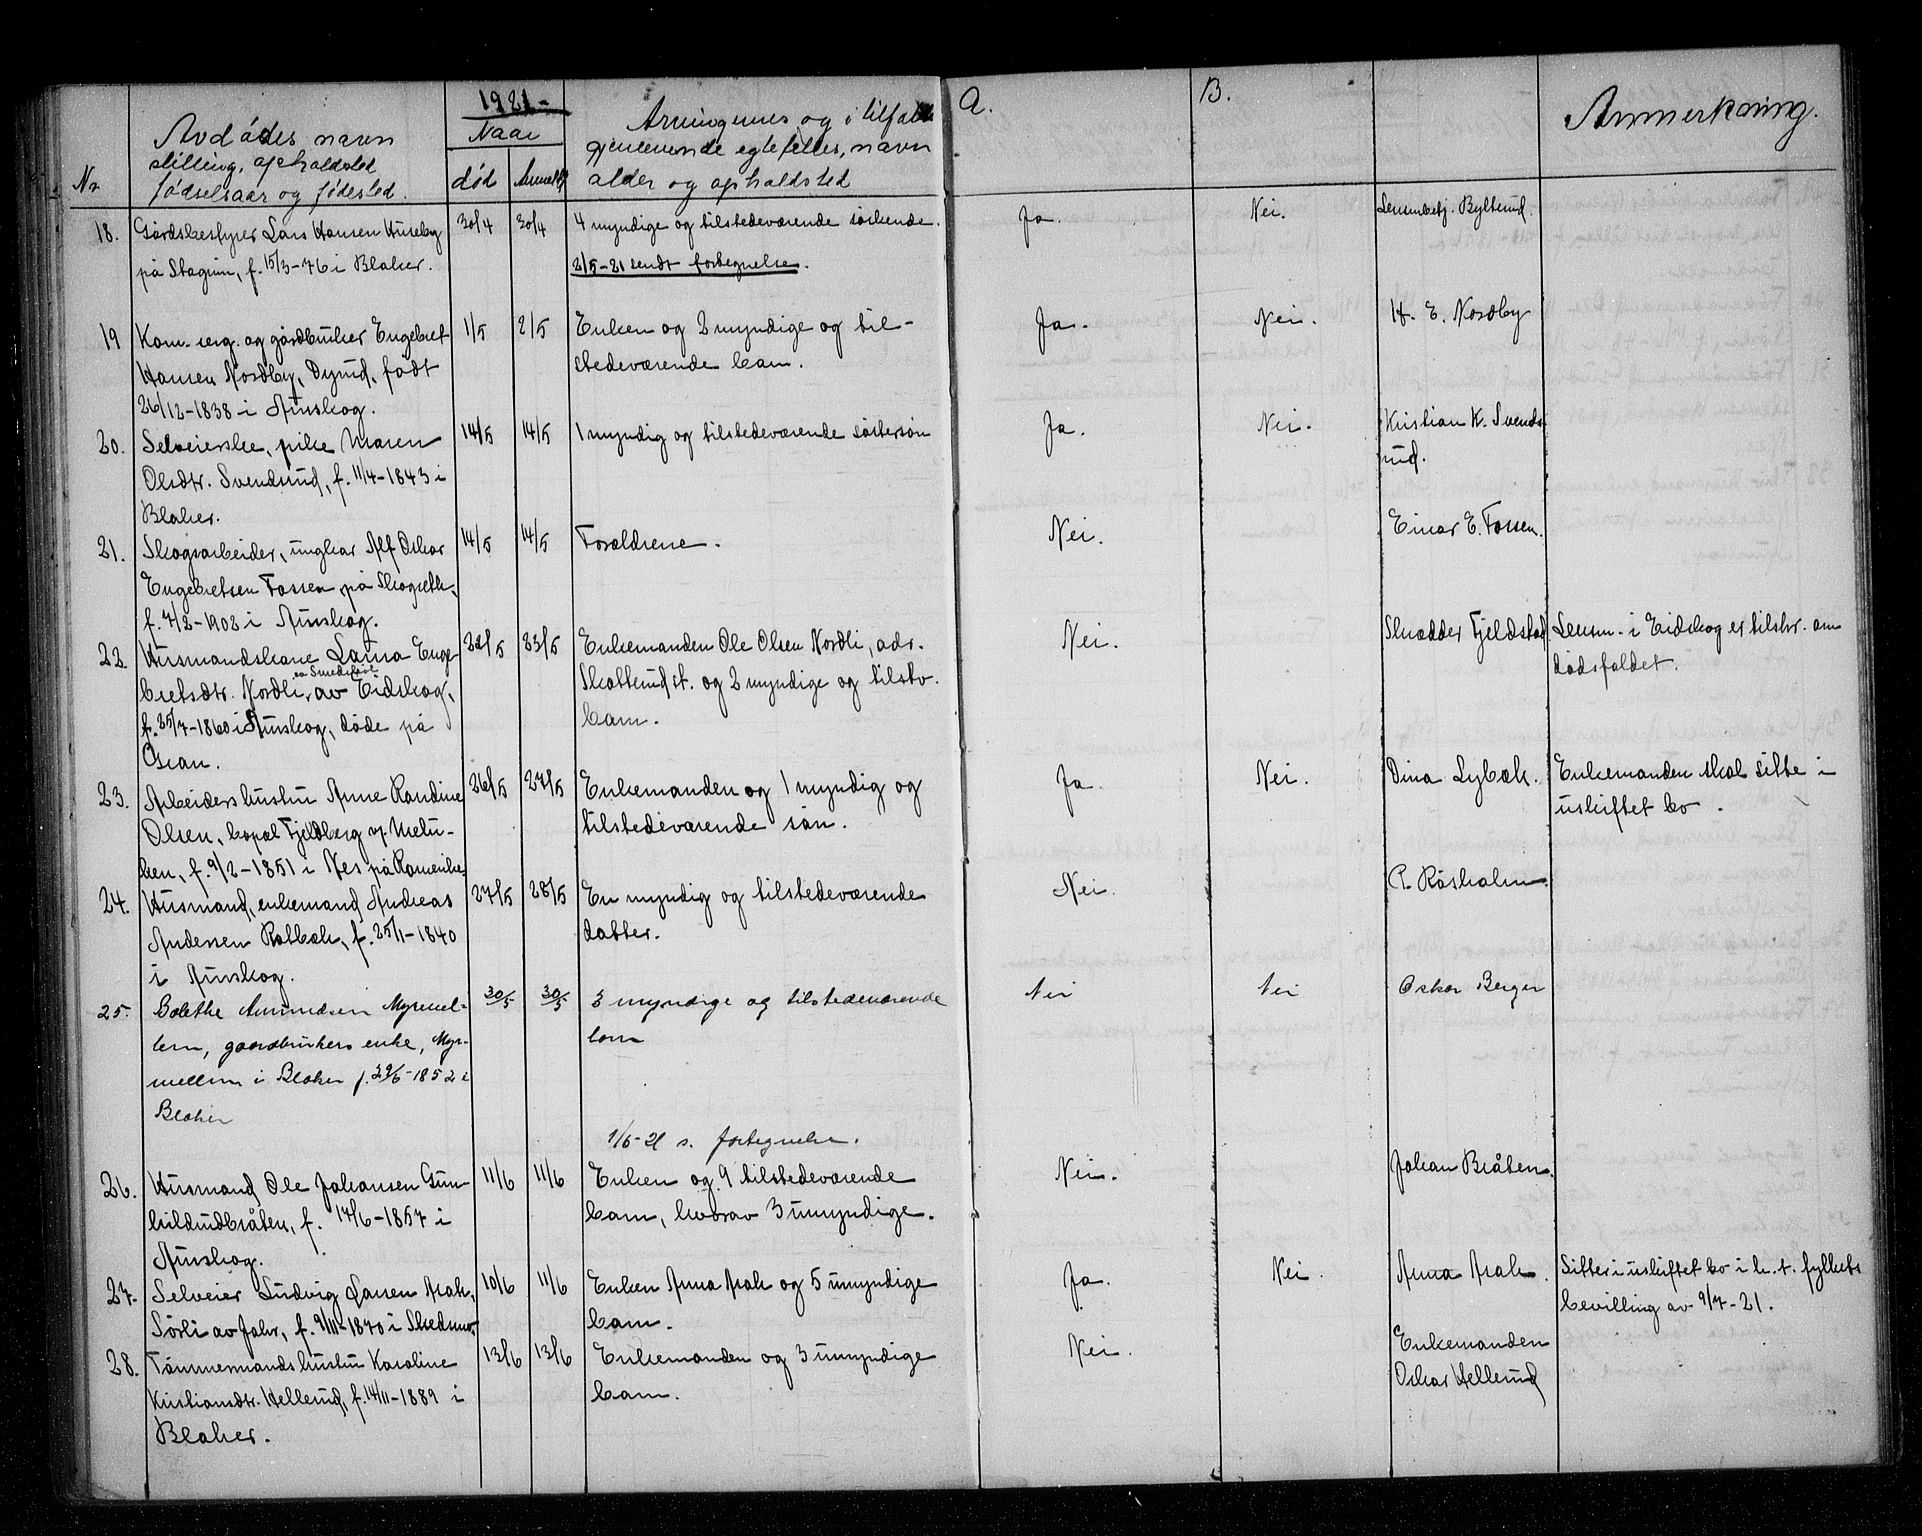 1921 -
Nr
Avdødes navn
stilling, opholdsted
fødselsaar og fødested.
Naar
død
Anmeldt
Arvingernes og i tilfælde
gjenlevende egtefelles, navn
alder og opholdsted
A.
B.
Anmerkning.
18. Gårdsbestyrer Lars Hansen Huseby 30/4 30/4 4 myndige og tilstedeværende søskende. Ja. Nei. Lensmbetj. Bylterud.
på Skagrim, f. 15/3-76 i Blaker. 2/5-21 sendt fortegnelse.
19 Kom. erg. og gårdbruker Engebret 1/5 2/5 Enken og 2 myndige og til- Ja. Nei. H. E. Nordby
Hansen Nordby, Dyrud, født stedeværende barn.
26/12-1838 i Aurskog.
20. Selveierske, pike Maren 14/5 14/5 1 myndig og tilstedeværende søstersøn Ja. Nei. Kristian K. Svends-
Olsdtr. Svendsrud, f. 11/4-1843 i rud.
Blaker.
21. Skogsarbeider, ungkar Alf Oskar 14/5 14/5 Forældrene. Nei. Einar E. Fossen.
Engebretsen Fossen på Skogseth,
f. 7/2-1902 i Aurskog.
22. Husmandskone Laura Enge- 22/5 23/5 Enkemanden Ole Olsen Nordli, adr. Nei. Skrædder Fjeldstad Lensm. i Eidskog er tilskr. om
bretsdtr. Nordli, av Eidskog, Skotterud st. og 2 myndige og tilstv. dødsfaldet.
f. 25/7-1860 i Aurskog, døde på barn.
Oran.
23. Arbeiders hustru Anne Randine 26/5 27/5 Enkemanden og 1 myndig og Ja. Nei. Dina Lybæk. Enkemanden skal sitte i
Olsen, bopæl Fjeldberg v. Meln- tilstedeværende søn. uskiftet bo.
ben, f. 9/2-1851 i Nes på Romerike.
24. Husmand, enkemand Andreas 27/5 28/5 En myndig og tilstedeværende Nei. P. Råsholm.
Andersen Rotbæk, f. 25/1-1840 datter.
i Aurskog.
25. Bolethe Amundsen Myrmel- 30/5 30/5 3 myndige og tilstedeværende Nei Nei Oskar Berger
lem, gaardbrukers enke, Myr- barn
mellem i Blaker f. 29/6-1852 i
Blaker
1/6-21 s. fortegnelse.
26. Husmand Ole Johansen Gun- 11/6 11/6 Enken og 9 tilstedeværende Nei. Johan Bråten.
hildrudbråten, f. 17/6-1857 i barn, hvorav 3 umyndige.
Aurskog.
27. Selveier Ludvig Larsen Asak, 10/6 11/6 Enken Anna Asak og 5 umyndige Ja. Nei. Anna Asak. Sitter i uskiftet bo i h. t. fylkets
Sørli av Jahr, f. 9/11-1870 i Skedsmo. barn. bevilling av 9/7-21.
28. Tømmermands hustru Karoline 13/6 13/6 Enkemanden og 3 umyndige Nei. Enkemanden
Kristiansdtr. Hellerud, f. 14/11-1889 i barn. Oskar Hellerud
Blaker.